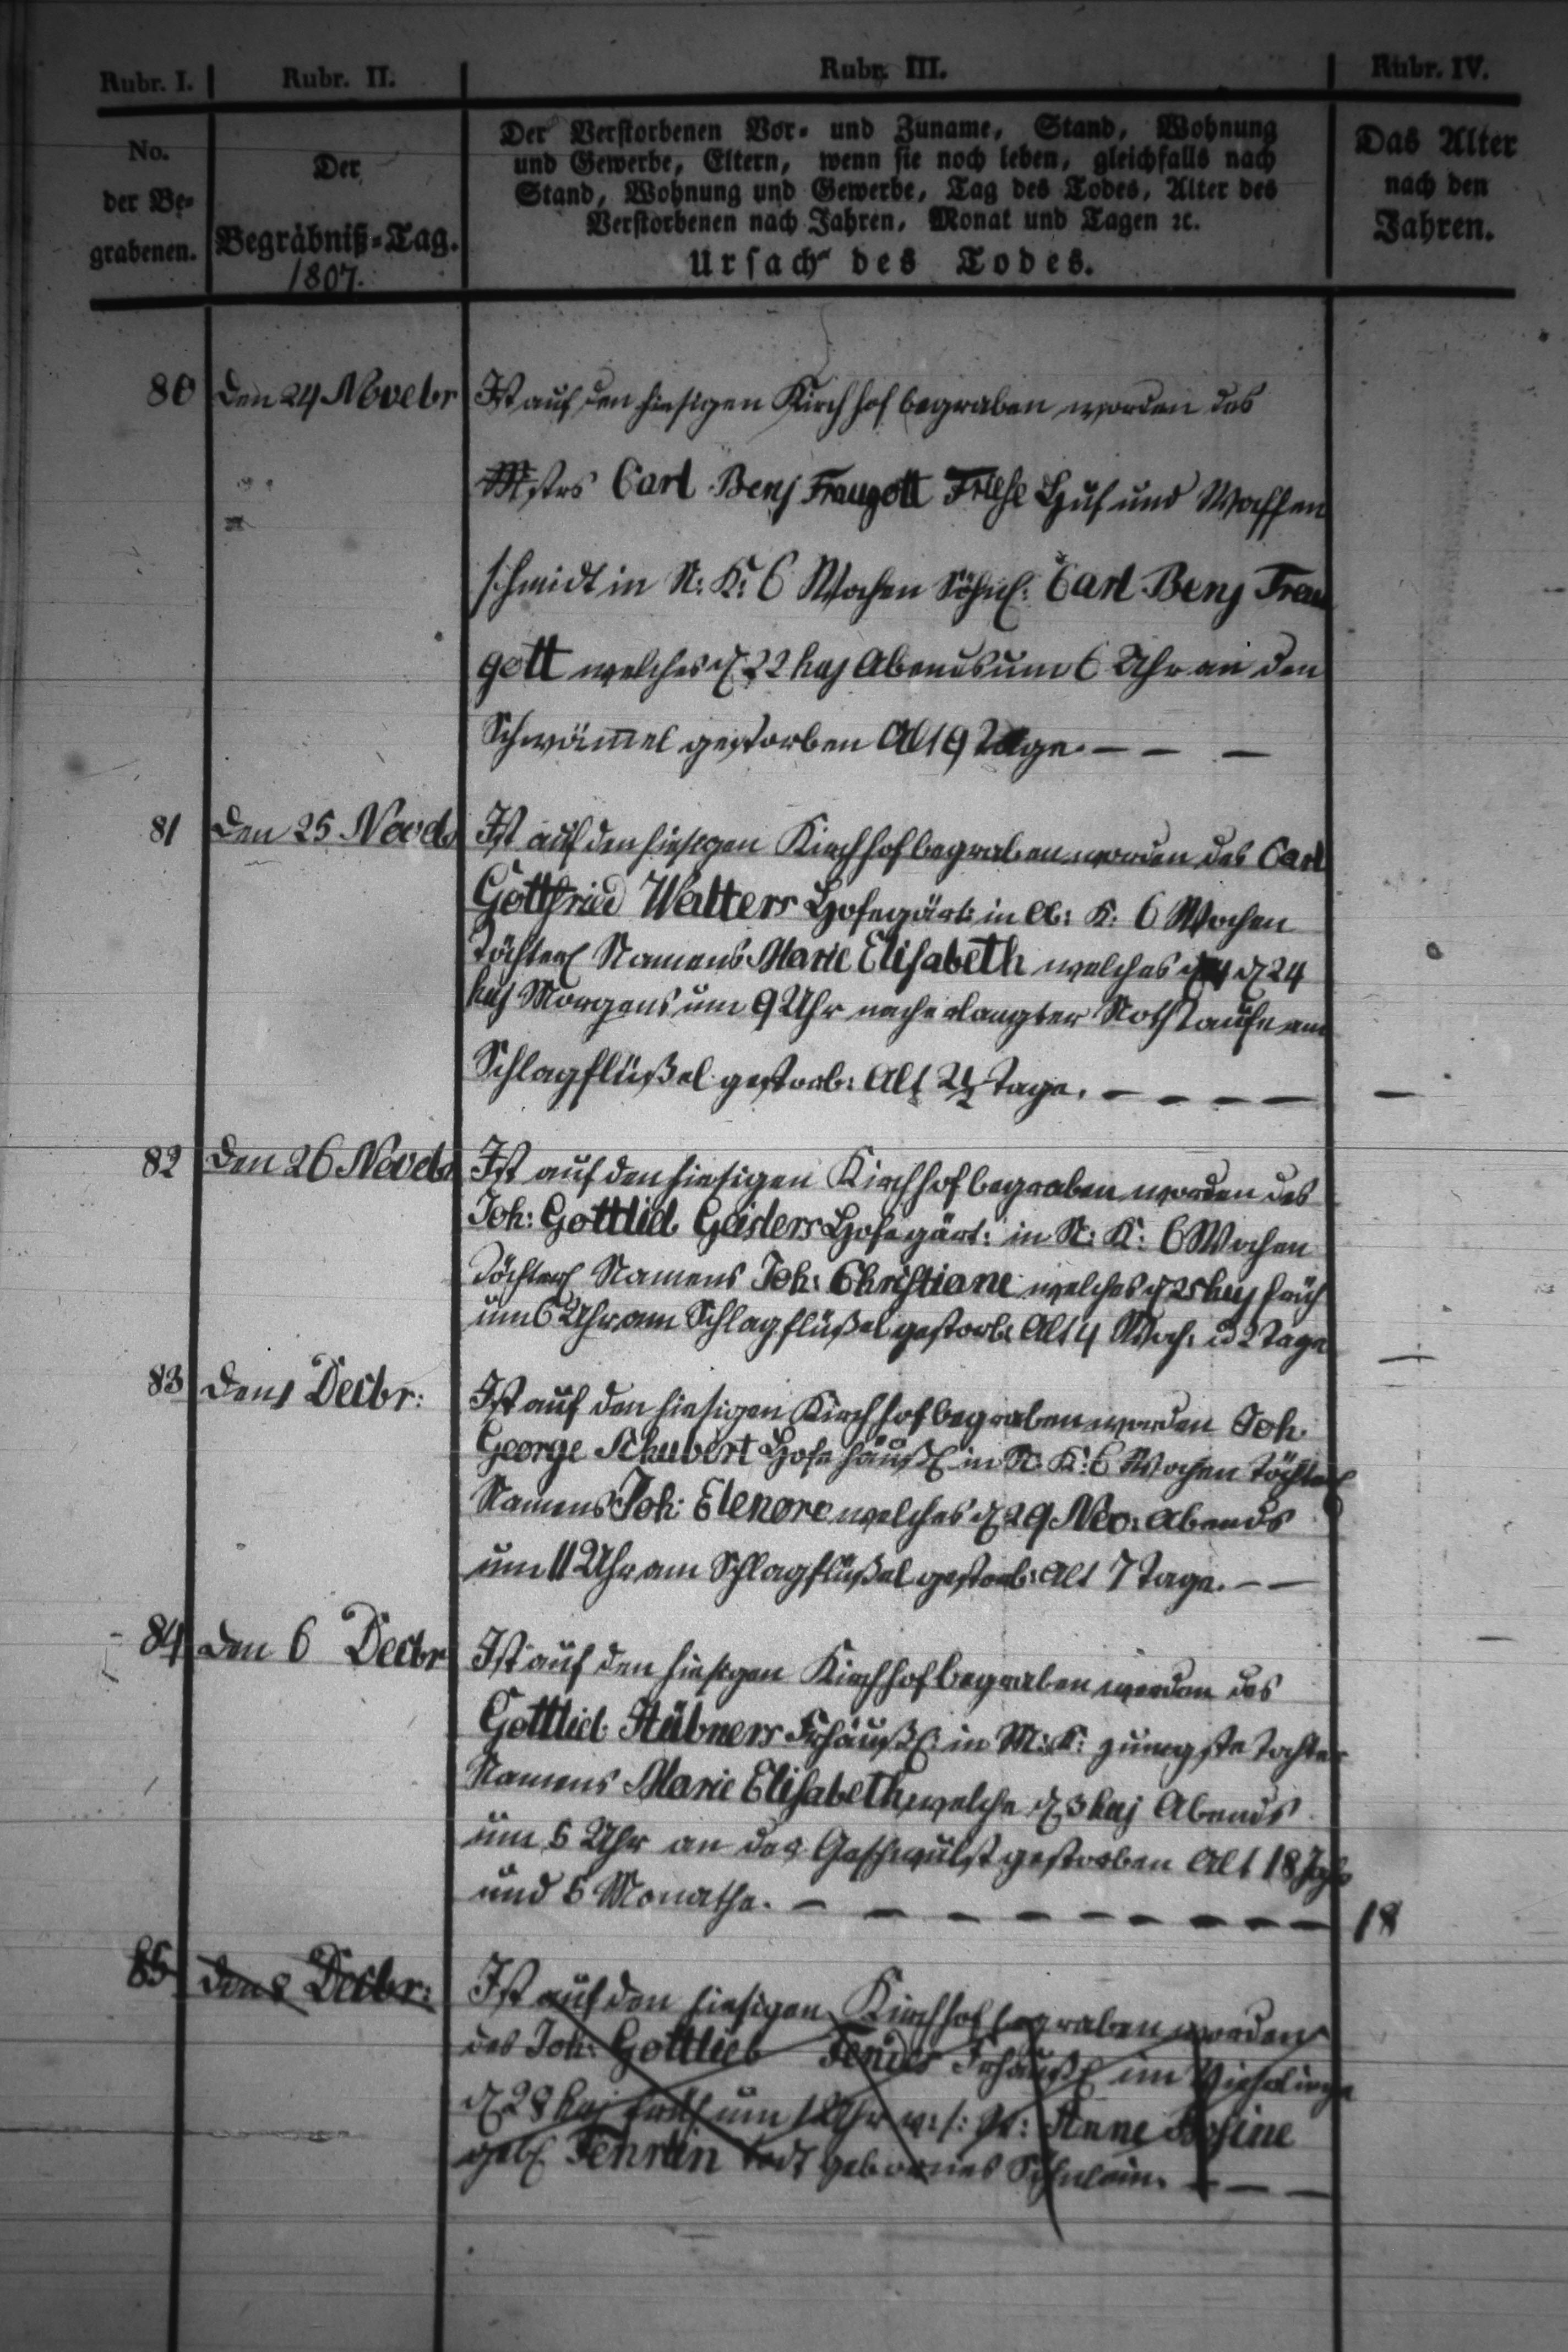 Rubr. I. Rubr. II. Rubr. III. Rubr. IV.
No.
der Be-
grabenen.
Der
Begräbniß-Tag.
1807.
Der Verstorbenen Vor- und Zuname, Stand, Wohnung
und Gewerbe, Eltern, wenn sie noch leben, gleichfalls nach
Stand, Wohnung und Gewerbe, Tag des Todes, Alter des
Verstorbenen nach Jahren, Monat und Tagen ꝛc.
Ursach des Todes.
Das Alter
nach den
Jahren.
80 den 24 Novebr Ist auf den hiesigen Kirchhof begraben worden des
Mstrs Carl Benj Traugott Friese Huf und Waffen
schmidt in N: K: 6 Wochen Söhnl: Carl Benj Trau
gott welches d 22 huj Abends um 6 Uhr an den
Schwämel gestorben Alt 9 Tage. — — —
81 den 25 Novebr Ist auf den hiesigen Kirchhof begraben worden des Carl
Gottfried Walters Hofegärt: in K: 6 Wochen
Töchterl Namens Marie Elisabeth welches d 24
huj Morgens um 9 Uhr nach erlangter Nothtaufe am
Schlagflüßel gestorb: Alt Tage. — — — —
82 den 26 Novebr Ist auf den hiesigen Kirchhof begraben worden des
Joh: Gottlieb Geislers Hofegärt: in N: K: 6 Wochen
Töchterl Namens Joh: Christiane welches d 25 huj früh
um 6 Uhr am Schlagflüßel gestorb: Alt 4 Woch: u 2 Tage
83 den 1 Decbr: Ist auf den hiesigen Kirchhof begraben worden Joh.
George Schubert Hofehäußl in N: K: 6 Wochen Töchterl
Namens Joh: Elenore welches d 29 Nov: Abends
um 11 Uhr am Schlagflüßel gestorb: Alt 7 Tage. — —
84 den 6 Decbr Ist auf den hiesigen Kirchhof begraben worden des
Gottlieb Hübners Frhäußl: in M: K: jüngste Tochter
Namens Marie Elisabeth welche d 3 huj Abends
um 5 Uhr an der Geschwulst gestorben Alt 18 Jahr
und 5 Monathe. — — — — — — — — 18
85 den 8 Decbr: Ist auf den hiesigen Kirchhof begraben worden
des Joh: Gottlieb Frhäußl im
d 28 huj früh um 1 Uhr v: s: W: Anne Rosine
geb todt gebornes Söhnlein. — — —